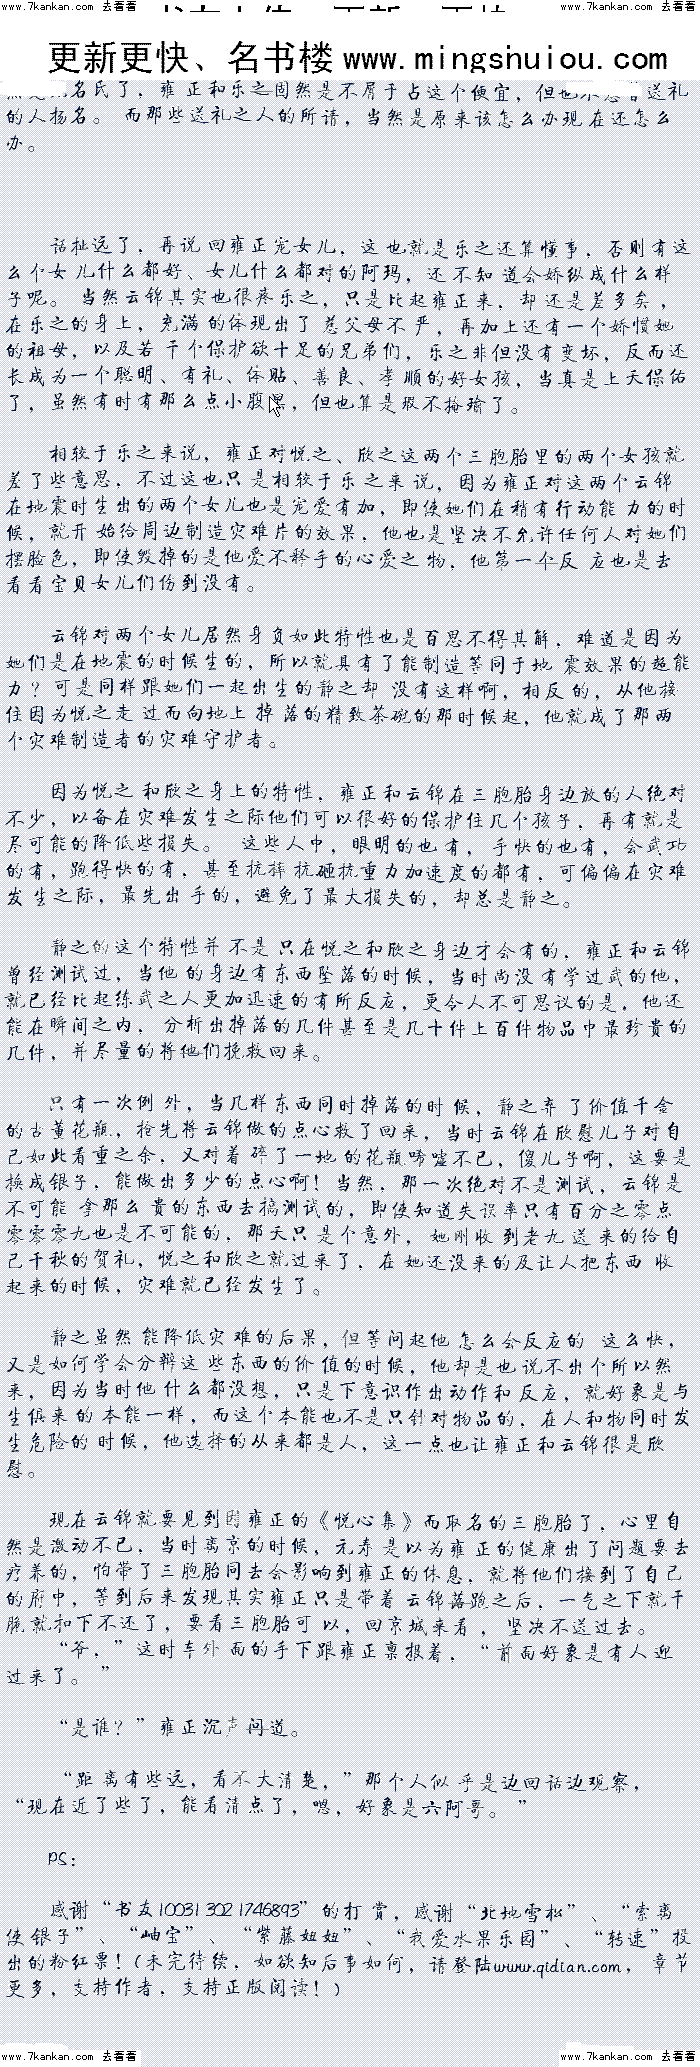 www.7kankan.com 去看看
www.7kankan.com 去看看
更新更快、名书楼 www.mingshuiou.com
名氏了，雍正和乐之固然是不屑于占这个便宜，但也
的人扬名。 而那些送礼之人的所请，当然是原来该怎么办现在还怎么
办。
话扯远了，再说回雍正宠女儿，这也就是乐之还算懂事，否则有这
么个女儿什么都好、女儿什么都对的阿玛，还不知道会娇纵成什么样
子呢。 当然云锦其实也很疼乐之，只是比起雍正来，却还是差多矣，
在乐之的身上，充满的体现出了慈父母不严，再加上还有一个娇惯她
的祖母，以及若干个保护欲十足的兄弟们，乐之非但没有变坏，反而还
长成为一个聪明、有礼、体贴、善良、孝顺的好女孩，当真是上天保佑
了，虽然有时有那么点小腹黑，但也算是瑕不掩瑜了。
相较于乐之来说，雍正对悦之、欣之这两个三胞胎里的两个女孩就
差了些意思，不过这也只是相较于乐之来说，因为雍正对这两个云锦
在地震时生出的两个女儿也是宠爱有加，即使她们在稍有行动能力的时
候，就开始给周边制造灾难片的效果，他也是坚决不允许任何人对她们
摆脸色，即使毁掉的是他爱不释手的心爱之物，他第一个反应也是去
看看宝贝女儿们伤到没有。
云锦对两个女儿居然身负如此特性也是百思不得其解，难道是因为
她们是在地震的时候生的，所以就具有了能制造等同于地震效果的超能
力？可是同样跟她们一起出生的静之却没有这样啊，相反的，从他接
住因为悦之走过而向地上掉落的精致茶碗的那时候起，他就成了那两
个灾难制造者的灾难守护者。
因为悦之和欣之身上的特性，雍正和云锦在三胞胎身边放的人绝对
不少，以备在灾难发生之际他们可以很好的保护住几个孩子，再有就是
尽可能的降低些损失。 这些人中，眼明的也有，手快的也有，会武功
的有，跑得快的有，甚至抗摔抗砸抗重力加速度的都有，可偏偏在灾难
发生之际，最先出手的，避免了最大损失的，却总是静之。
静之的这个特性并不是只在悦之和欣之身边才会有的，雍正和云锦
曾经测试过，当他的身边有东西坠落的时候，当时尚没有学过武的他，
就已经比起练武之人更加迅速的有所反应，更令人不可思议的是，他还
能在瞬间之内，分析出掉落的几件甚至是几十件上百件物品中最珍贵的
几件，并尽量的将他们挽救回来。
只有一次例外，当几样东西同时掉落的时候，静之弃了价值千金
的古董花瓶，抢先将云锦做的点心救了回来，当时云锦在欣慰儿子对自
己如此看重之余，又对着碎了一地的花瓶唏嘘不已，傻儿子啊，这要是
换成银子，能做出多少的点心啊！当然，那一次绝对不是测试，云锦是
不可能拿那么贵的东西去搞测试的，即使知道失误率只有百分之零点
零零零九也是不可能的，那天只是个意外，她刚收到老九送来的给自
己千秋的贺礼，悦之和欣之就过来了，在她还没来的及让人把东西收
起来的时候，灾难就已经发生了。
静之虽然能降低灾难的后果，但等问起他怎么会反应的这么快，
又是如何学会分辩这些东西的价值的时候，他却是也说不出个所以然
来，因为当时他什么都没想，只是下意识作出动作和反应，就好象是与
生俱来的本能一样，而这个本能也不是只针对物品的，在人和物同时发
生危险的时候，他选择的从来都是人，这一点也让雍正和云锦很是欣
慰。
现在云锦就要见到因雍正的《悦心集》而取名的三胞胎了，心里自
然是激动不已，当时离京的时候，元寿是以为雍正的健康出了问题要去
疗养的，怕带了三胞胎同去会影响到雍正的休息，就将他们接到了自己
的府中，等到后来发现其实雍正只是带着云锦落跑之后，一气之下就干
脆就扣下不还了，要看三胞胎可以，回京城来看，坚决不送过去。
“爷，”这时车外面的手下跟雍正禀报着，“前面好象是有人迎
过来了。”
“是谁？”雍正沉声问道。
“距离有些远，看不大清楚，”那个人似乎是边回话边观察，
“现在近了些了，能看清点了，嗯，好象是六阿哥。”
PS：
感谢“书友100313021746893”的打赏，感谢“北地雪松”、“索离
侠银子”、“岫宝”、“紫藤妞妞”、“我爱水果乐园”、“转速”投
出的粉红票！(未完待续，如欲知后事如何，请登陆www.qidian.com，章节
更多，支持作者，支持正版阅读！)
www.7kankan.com 去看看
www.7kankan.com 去看看